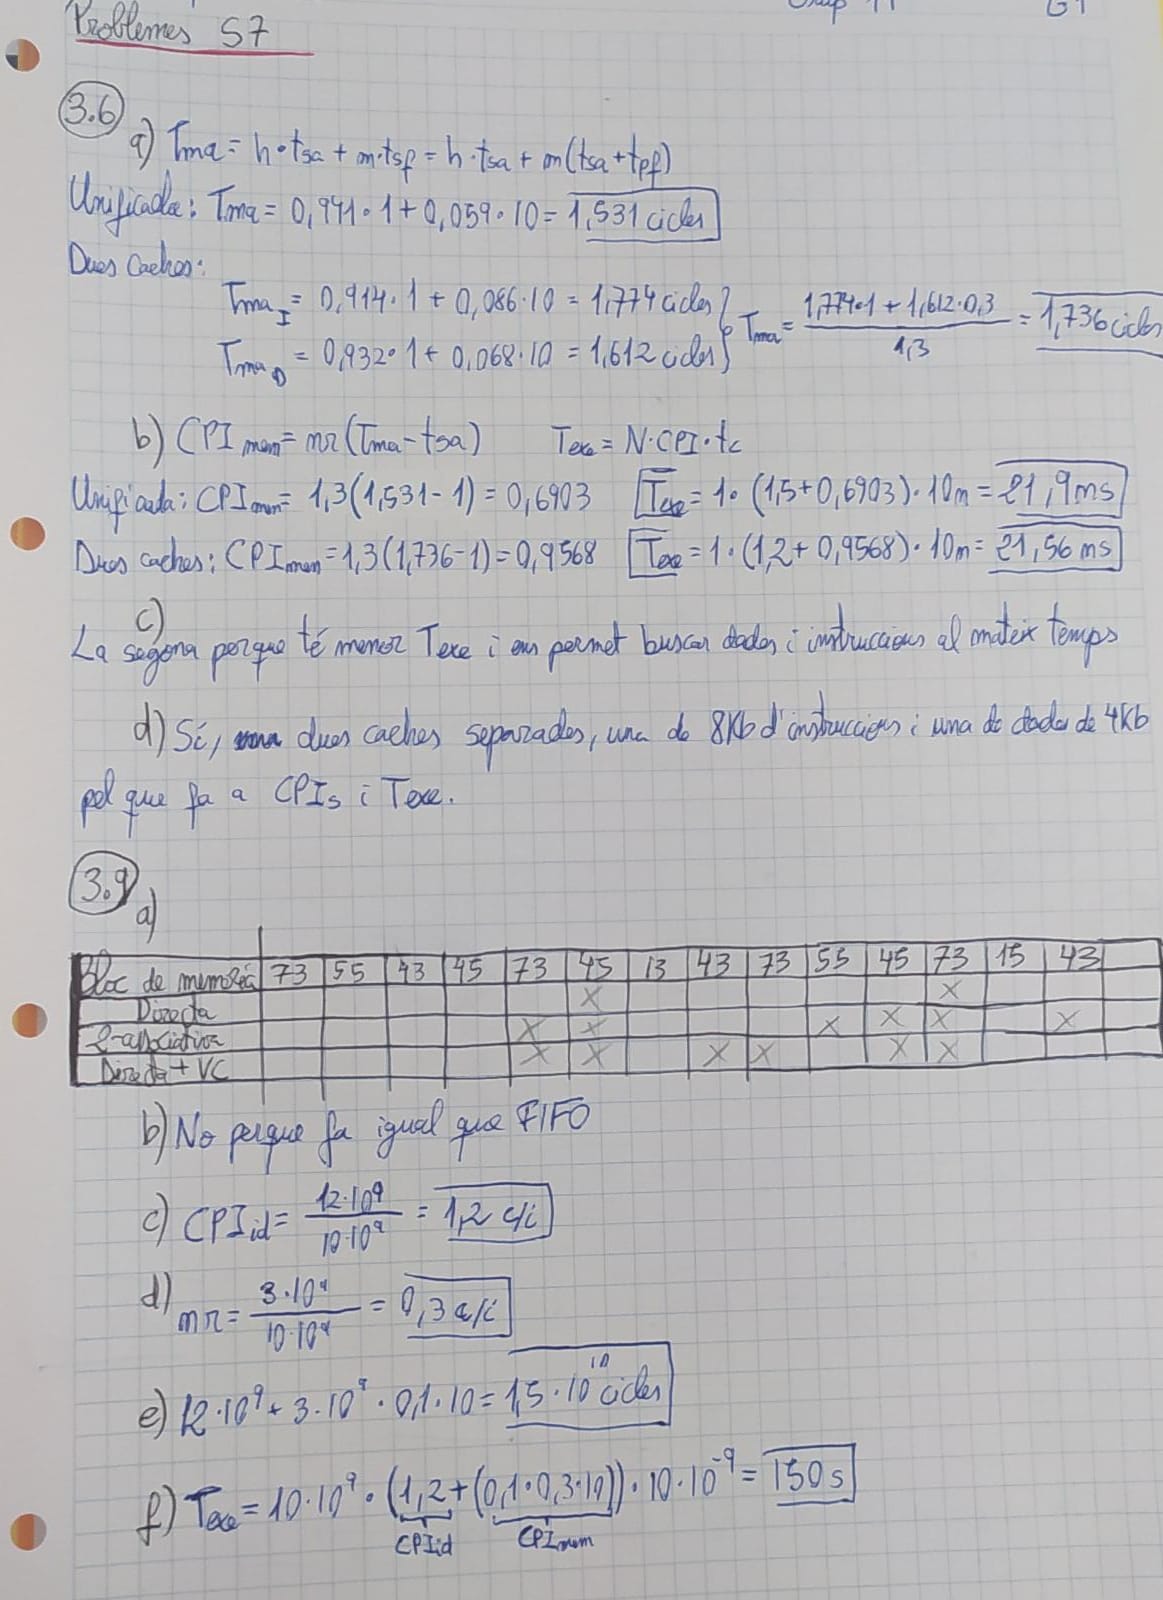 Problemes S7
Grup 11 G1
3.6
a) Tma = h·tsa + m·tsf = h·tsa + m(tsa+tpf)
Unificada: Tma = 0,941·1 + 0,059·10 = 1,531 cicles
Dues Caches:
TmaI = 0,914·1 + 0,086·10 = 1,774 cicles
TmaD = 0,932·1 + 0,068·10 = 1,612 cicles
} Tma = (1,774·1 + 1,612·0,3) / 1,3 = 1,736 cicles
b) CPImem = nr(Tma - tsa) Texe = N·CPI·tc
Unificada: CPImem = 1,3(1,531-1) = 0,6903 Texe = 1·(1,5+0,6903)·10m = 21,9 ms
Dues caches: CPImem = 1,3(1,736-1) = 0,9568 Texe = 1·(1,2+0,9568)·10m = 21,56 ms
c)
La segona perque té menor Texe i ens permet buscar dades i instruccions al mateix temps
d) Sí, dues caches separades, una de 8Kb d'instruccions i una de dades de 4Kb
pel que fa a CPIs i Texe.
3.9
a)
Bloc de memòria 73 55 43 45 73 45 13 43 73 55 45 73 15 43
Directa X X
2-associativa X X X X X X
Directa + VC X X X X X X
b) No perque fa igual que FIFO
c) CPIid = 12·10⁹ / 10·10⁹ = 1,2 c/i
d) nr = 3·10⁹ / 10·10⁹ = 0,3 a/i
e) 12·10⁹ + 3·10⁹ · 0,1·10 = 1,5·10¹⁰ cicles
f) Texe = 10·10⁹ · (1,2 + (0,1·0,3·10))·10·10⁻⁹ = 150 s
CPIid CPImem